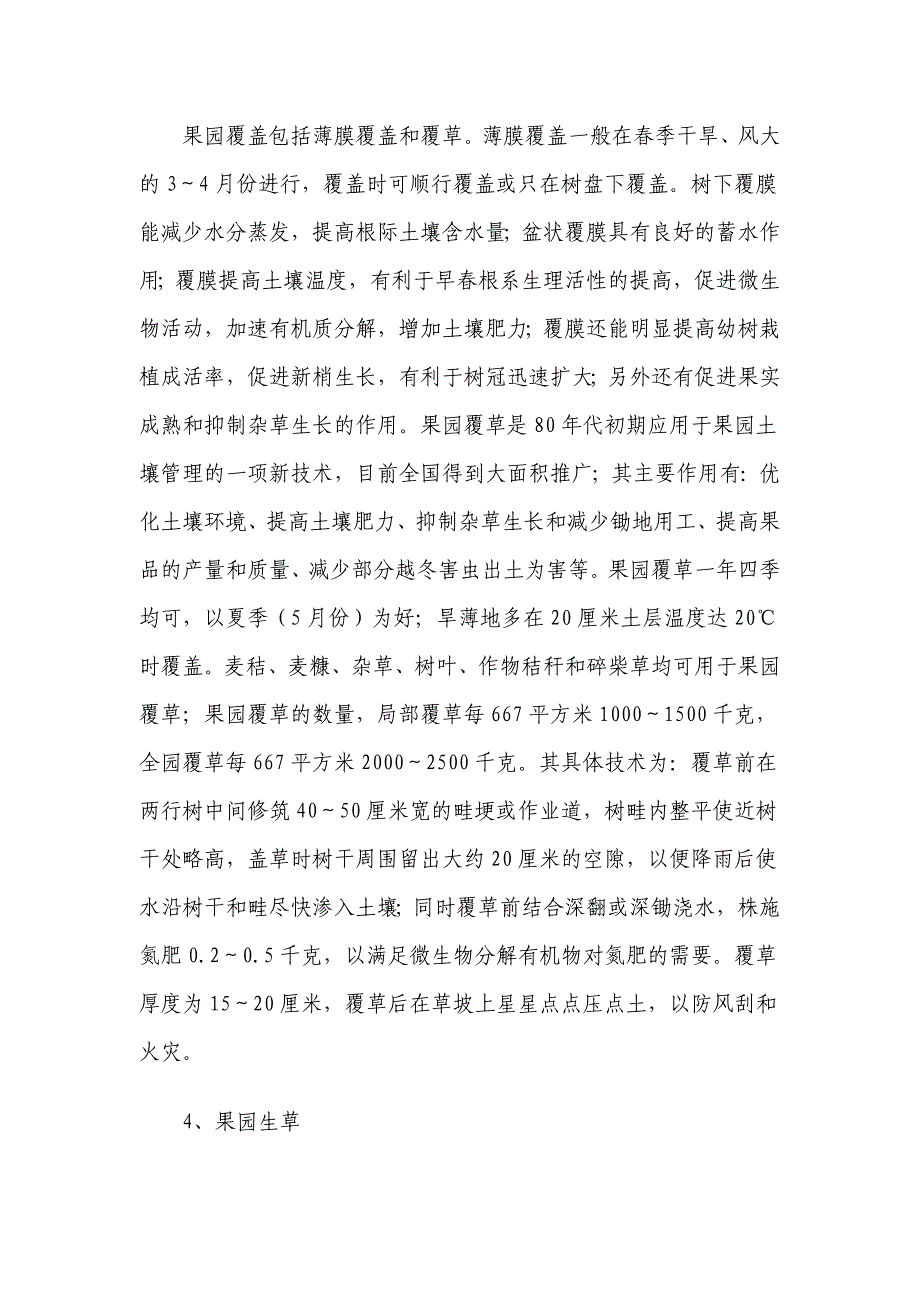 果园覆盖包括薄膜覆盖和覆草。薄膜覆盖一般在春季干旱、风大
的 3～4 月份进行，覆盖时可顺行覆盖或只在树盘下覆盖。树下覆膜
能减少水分蒸发，提高根际土壤含水量；盆状覆膜具有良好的蓄水作
用；覆膜提高土壤温度，有利于早春根系生理活性的提高，促进微生
物活动，加速有机质分解，增加土壤肥力；覆膜还能明显提高幼树栽
植成活率，促进新梢生长，有利于树冠迅速扩大；另外还有促进果实
成熟和抑制杂草生长的作用。果园覆草是 80 年代初期应用于果园土
壤管理的一项新技术，目前全国得到大面积推广；其主要作用有：优
化土壤环境、提高土壤肥力、抑制杂草生长和减少锄地用工、提高果
品的产量和质量、减少部分越冬害虫出土为害等。果园覆草一年四季
均可，以夏季（5 月份）为好；旱薄地多在 20 厘米土层温度达 20℃
时覆盖。麦秸、麦糠、杂草、树叶、作物秸秆和碎柴草均可用于果园
覆草；果园覆草的数量，局部覆草每 667 平方米 1000～1500 千克，
全园覆草每 667 平方米 2000～2500 千克。其具体技术为：覆草前在
两行树中间修筑 40～50 厘米宽的畦埂或作业道，树畦内整平使近树
干处略高，盖草时树干周围留出大约 20 厘米的空隙，以便降雨后使
水沿树干和畦尽快渗入土壤；同时覆草前结合深翻或深锄浇水，株施
氮肥 0.2～0.5 千克，以满足微生物分解有机物对氮肥的需要。覆草
厚度为 15～20 厘米，覆草后在草坡上星星点点压点土，以防风刮和
火灾。
4、果园生草